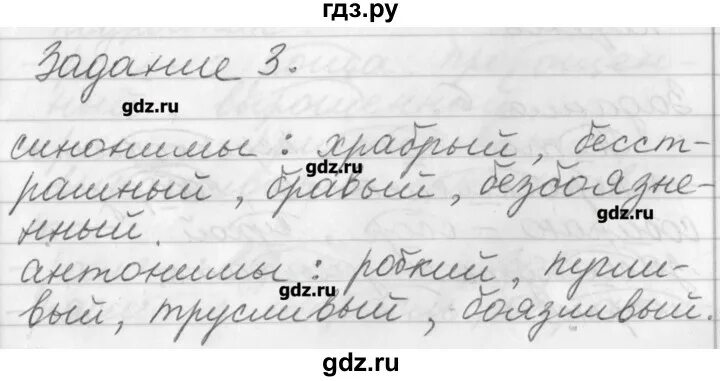 гдз.ру
Задание 3.
gdz.ru
синонимы: храбрый, бесст-
gdz.ru
рашный, бравый, безбоязне-
gdz.ru
нный.
антонимы: робкий, пугли-
gdz.ru
вый, трусливый, боязливый.
gdz.ru